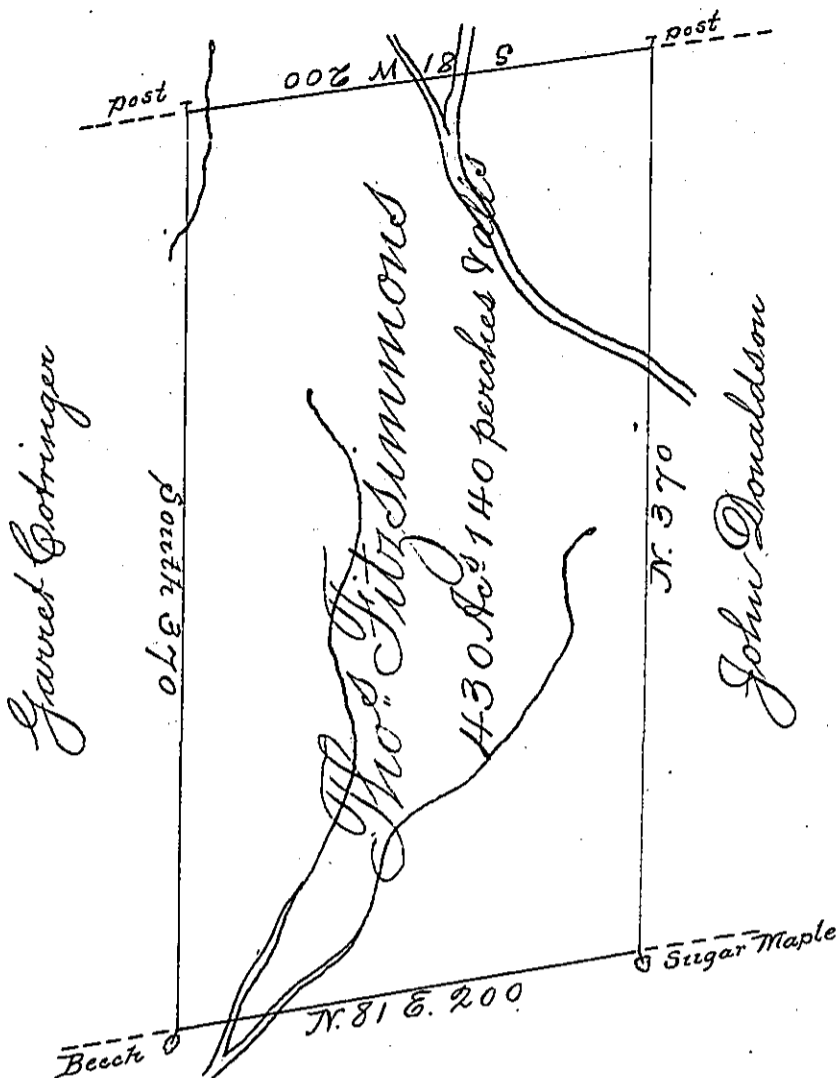 post
S 81 W 200
post
Garret Cotringer
South 370
Thos Fitzsimmons
430 Acs 140 perches & alls
N. 370
John Donaldson
Beech
N. 81 E. 200
Sugar Maple